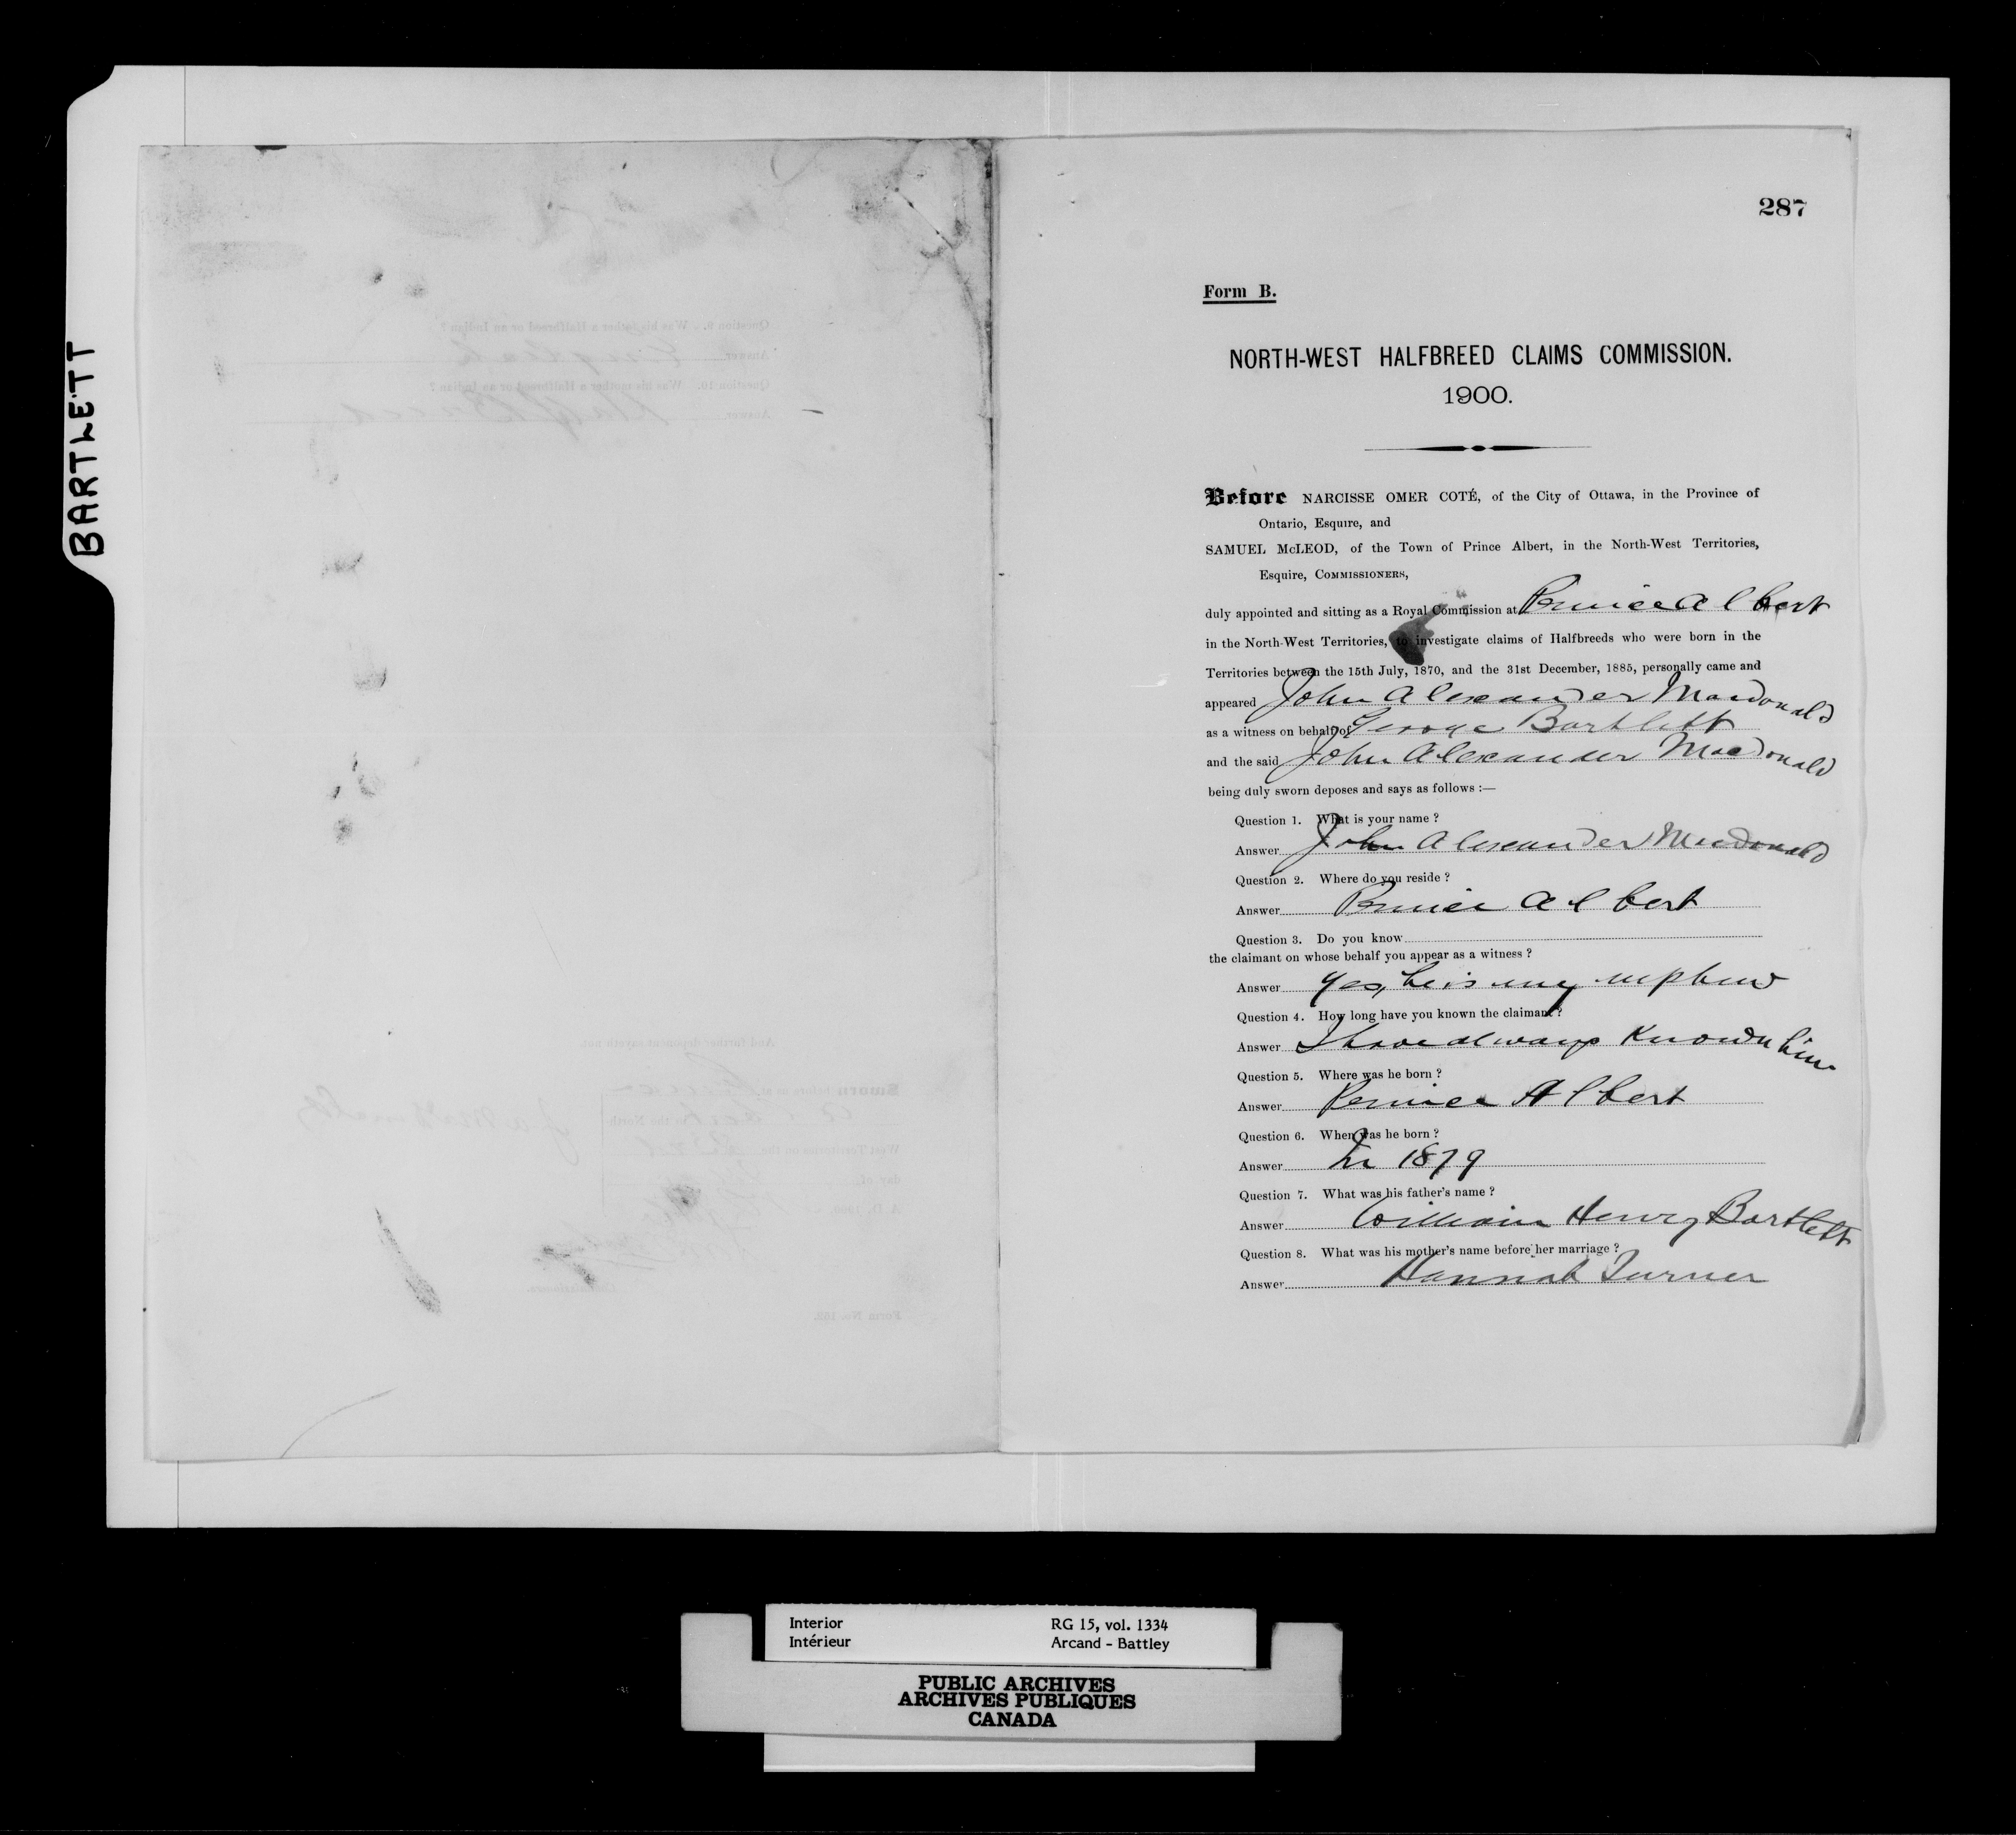 BARTLETT
Question 9. Was his father a Halfbreed or an Indian ?
Answer
Question 10. Was his mother a Halfbreed or an Indian ?
Answer Half Breed
And further deponent sayeth not.
Sworn before us at
in the North
West Territories on the
day of
A. D. 1900.
Form No. 152.
287
Form B.
NORTH-WEST HALFBREED CLAIMS COMMISSION.
1900.
Before NARCISSE OMER COTÉ, of the City of Ottawa, in the Province of
Ontario, Esquire, and
SAMUEL McLEOD, of the Town of Prince Albert, in the North-West Territories,
Esquire, COMMISSIONERS,
duly appointed and sitting as a Royal Commission at Prince Albert
in the North-West Territories, to investigate claims of Halfbreeds who were born in the
Territories between the 15th July, 1870, and the 31st December, 1885, personally came and
appeared John Alexander Macdonald
as a witness on behalf of George Bartlett
and the said John Alexander Macdonald
being duly sworn deposes and says as follows :—
Question 1. What is your name ?
Answer John Alexander Macdonald
Question 2. Where do you reside ?
Answer Prince Albert
Question 3. Do you know
the claimant on whose behalf you appear as a witness ?
Answer Yes, he is my nephew
Question 4. How long have you known the claimant ?
Answer I have always known him
Question 5. Where was he born ?
Answer Prince Albert
Question 6. When was he born ?
Answer In 1879
Question 7. What was his father's name ?
Answer William Henry Bartlett
Question 8. What was his mother's name before her marriage ?
Answer Hannah Turner
Interior RG 15, vol. 1334
Intérieur Arcand - Battley
PUBLIC ARCHIVES
ARCHIVES PUBLIQUES
CANADA